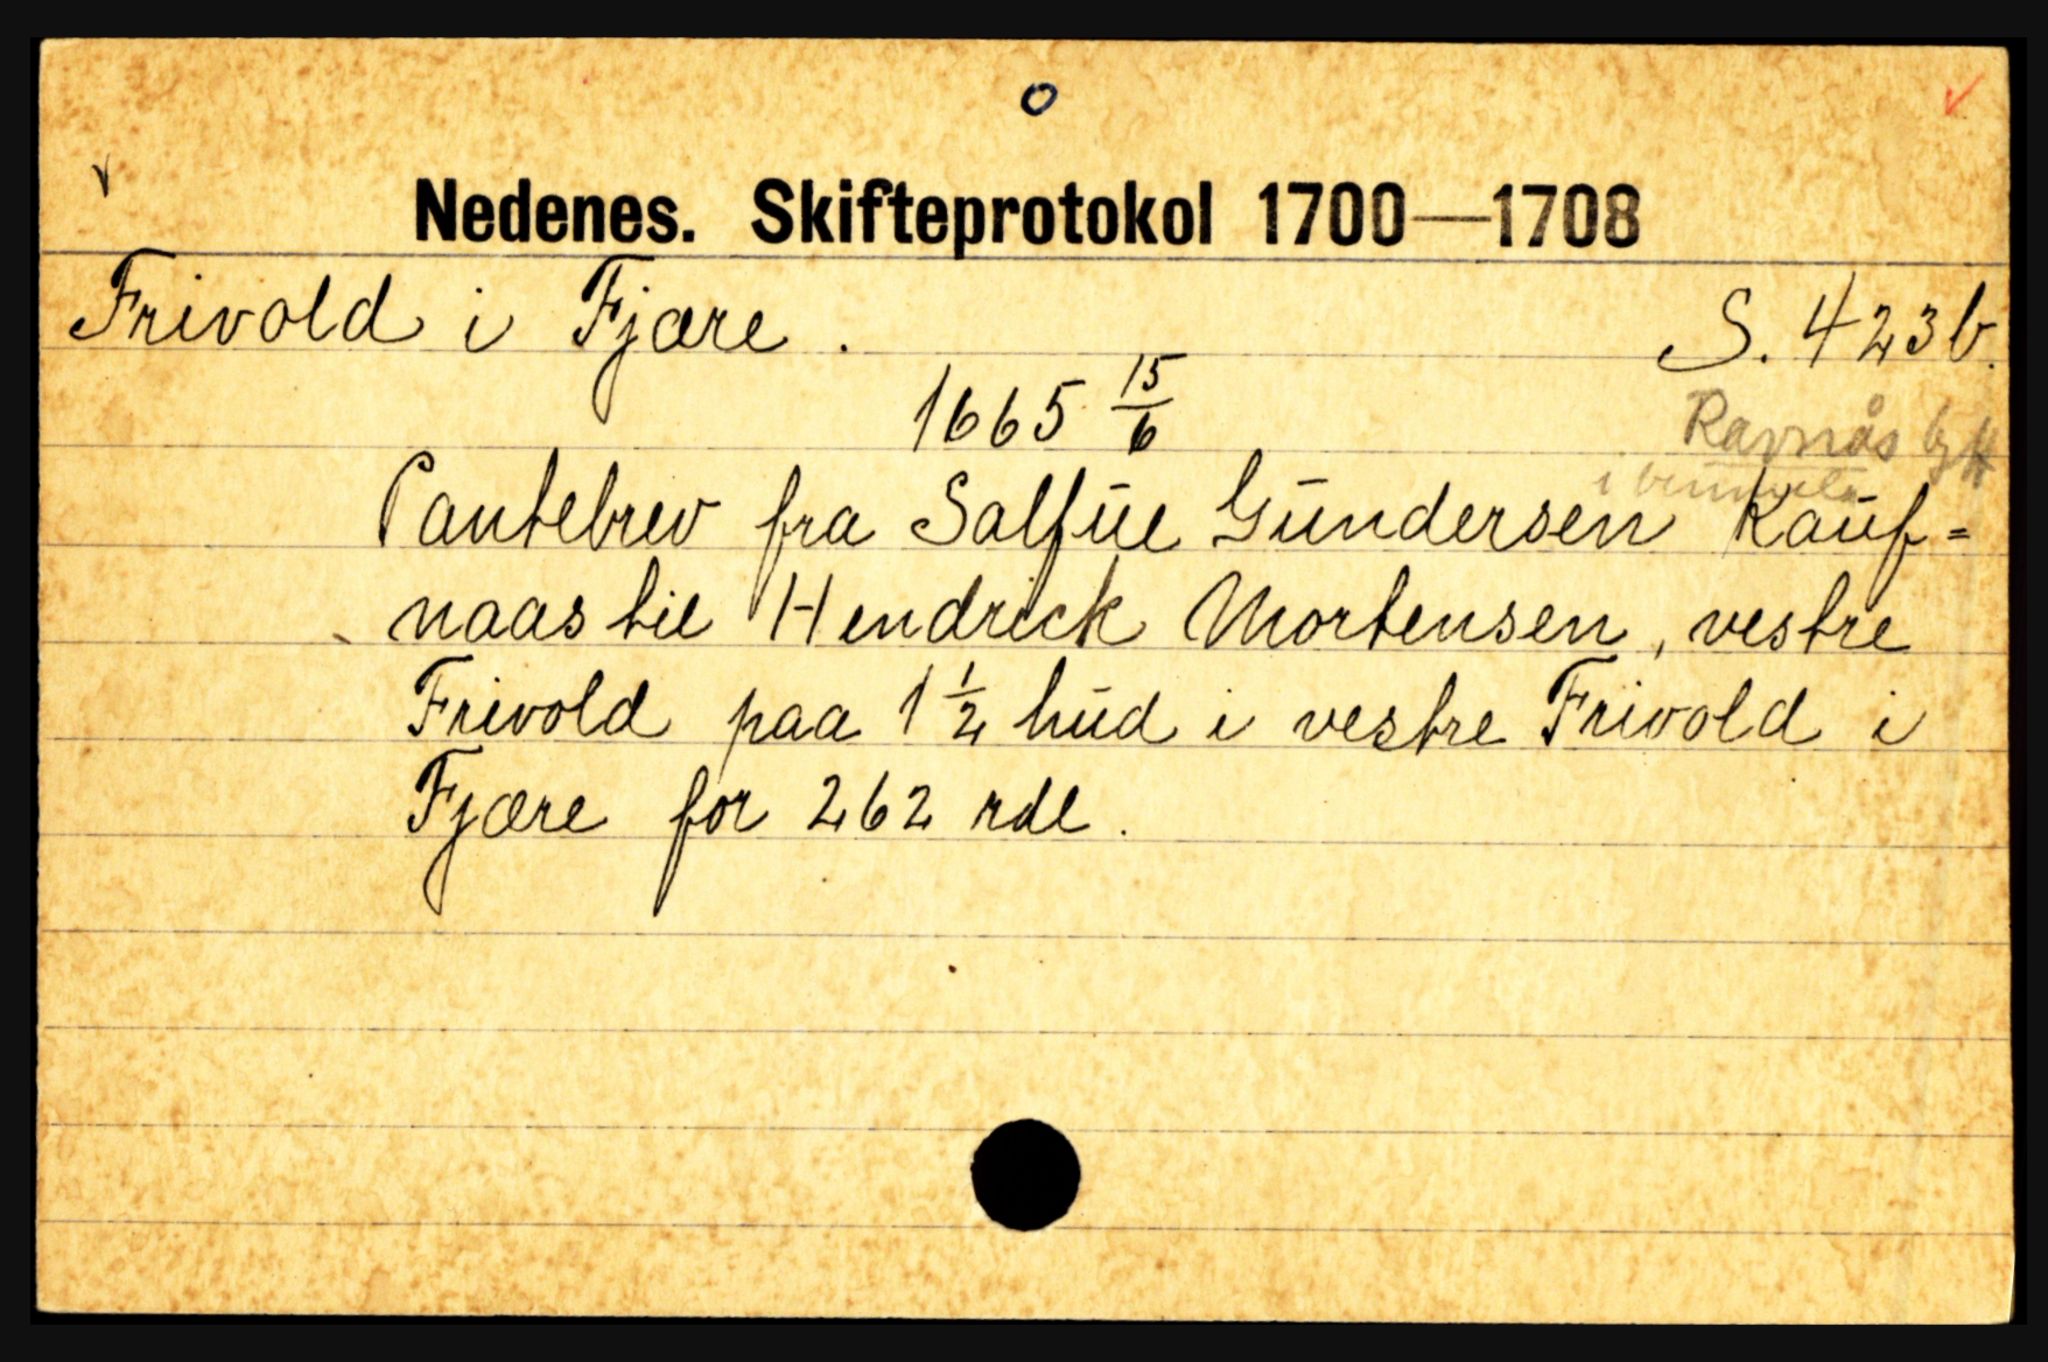 o
Nedenes. Skifteprotokol 1700—1708
Frivold i Fjære. S. 423b.
1665 15/6
Ravnås
i
Pantebrev fra Salfue Gundersen Kauf=
naas til Hendrick Mortensen, vestre
Frivold paa 1 1/2 hud i vestre Frivold i
Fjære for 262 rdl.